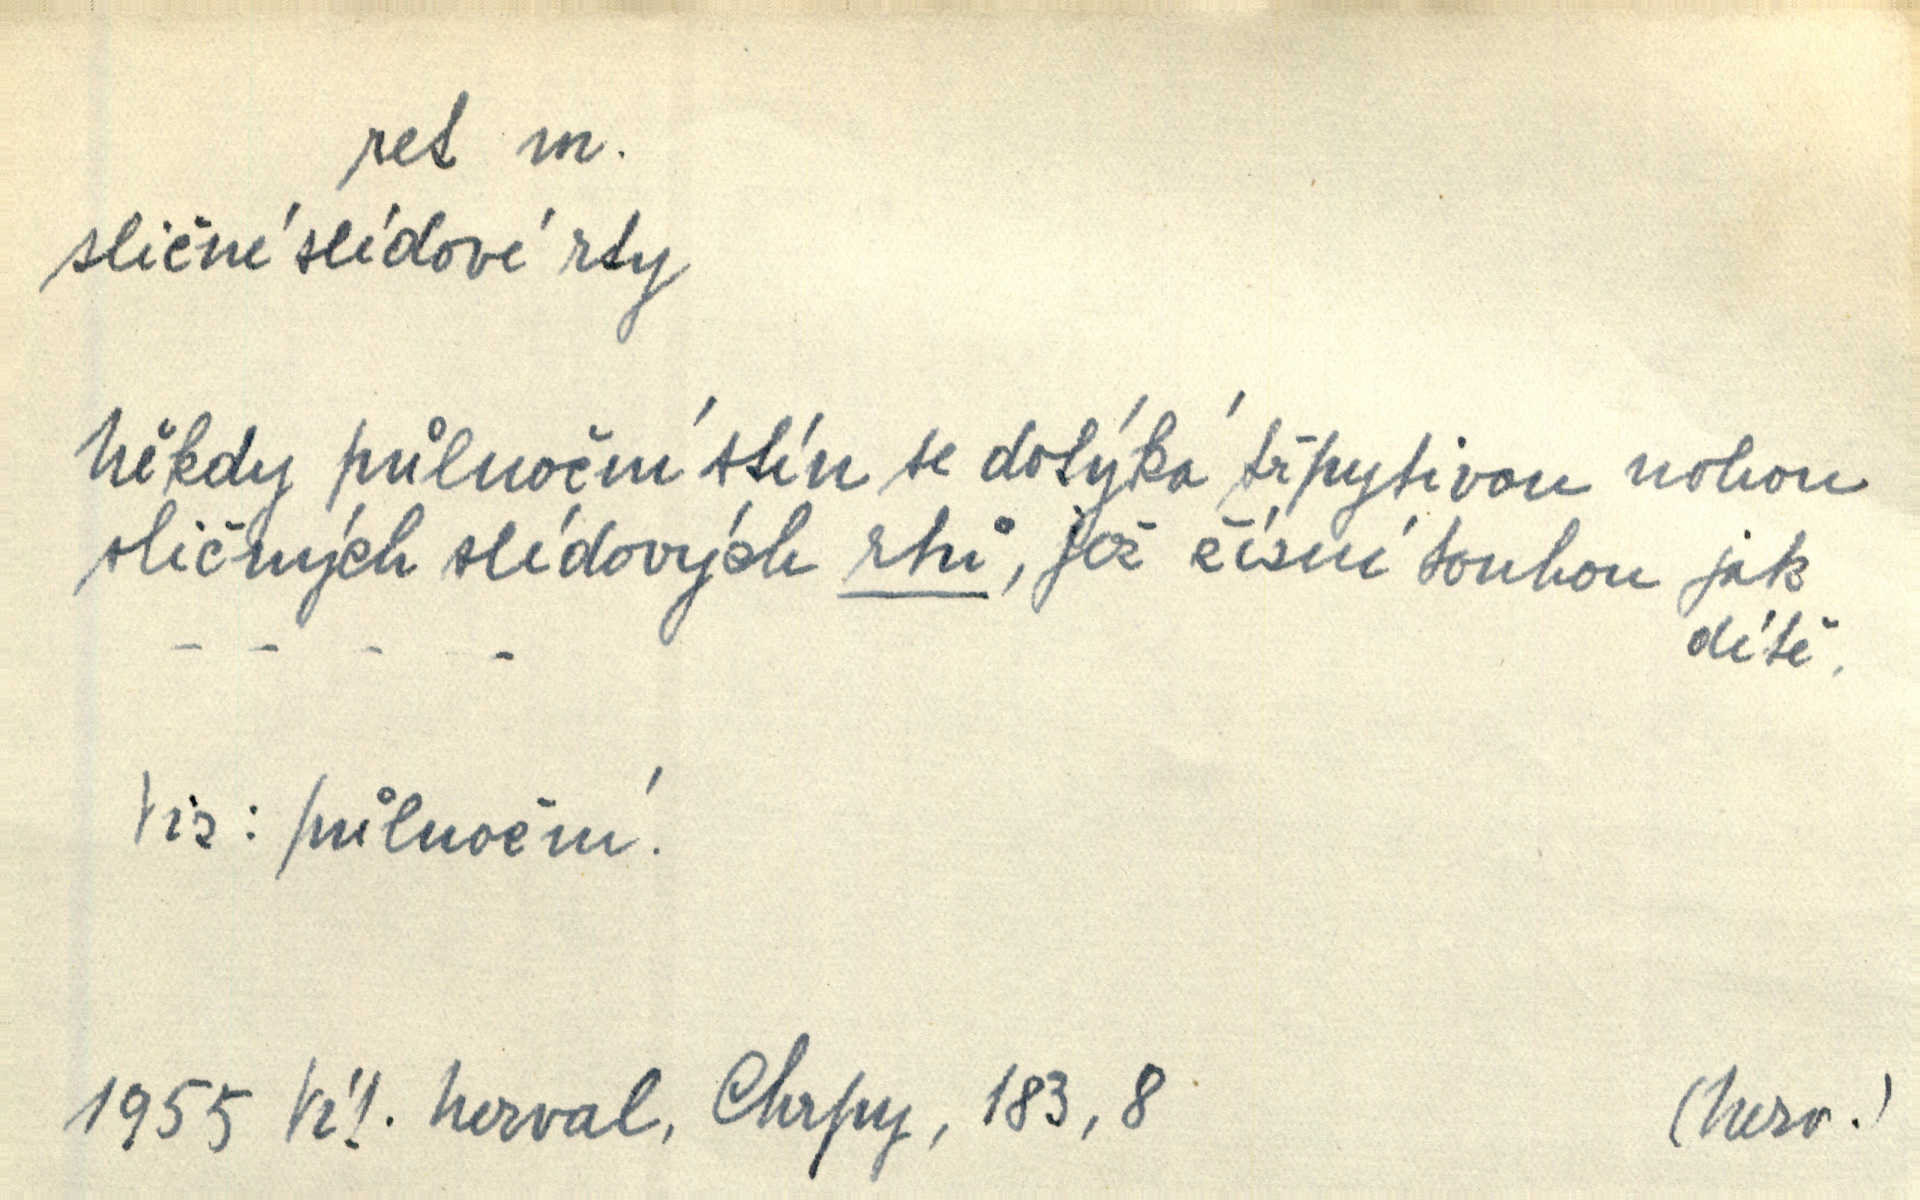 ret m.
sličné slídové rty
Někdy půlnoční stín se dotýká třpytivou nohou
sličných slídových rtů, jež žísní touhou jak
dítě.
– – – –
Viz: půlnoční.
1955 Vít. Nerval, Chrpy, 183, 8 (Nerv.)